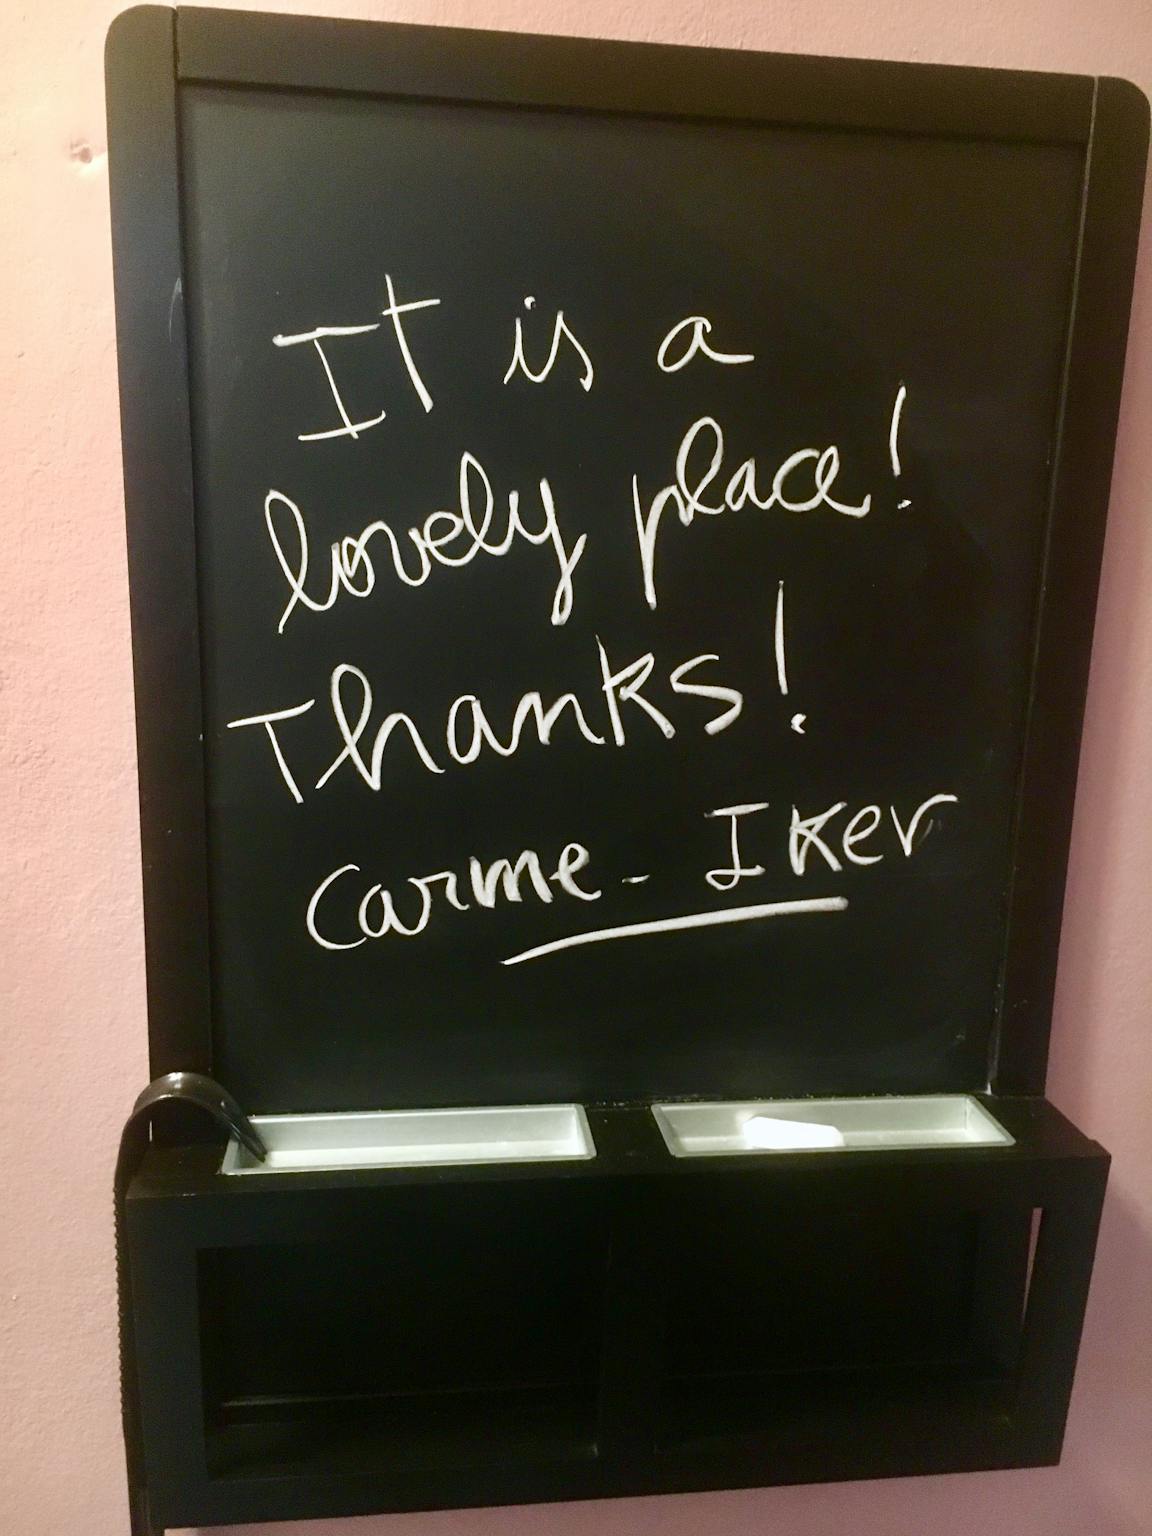 It is a
lovely place!
Thanks!
Carme - Iker